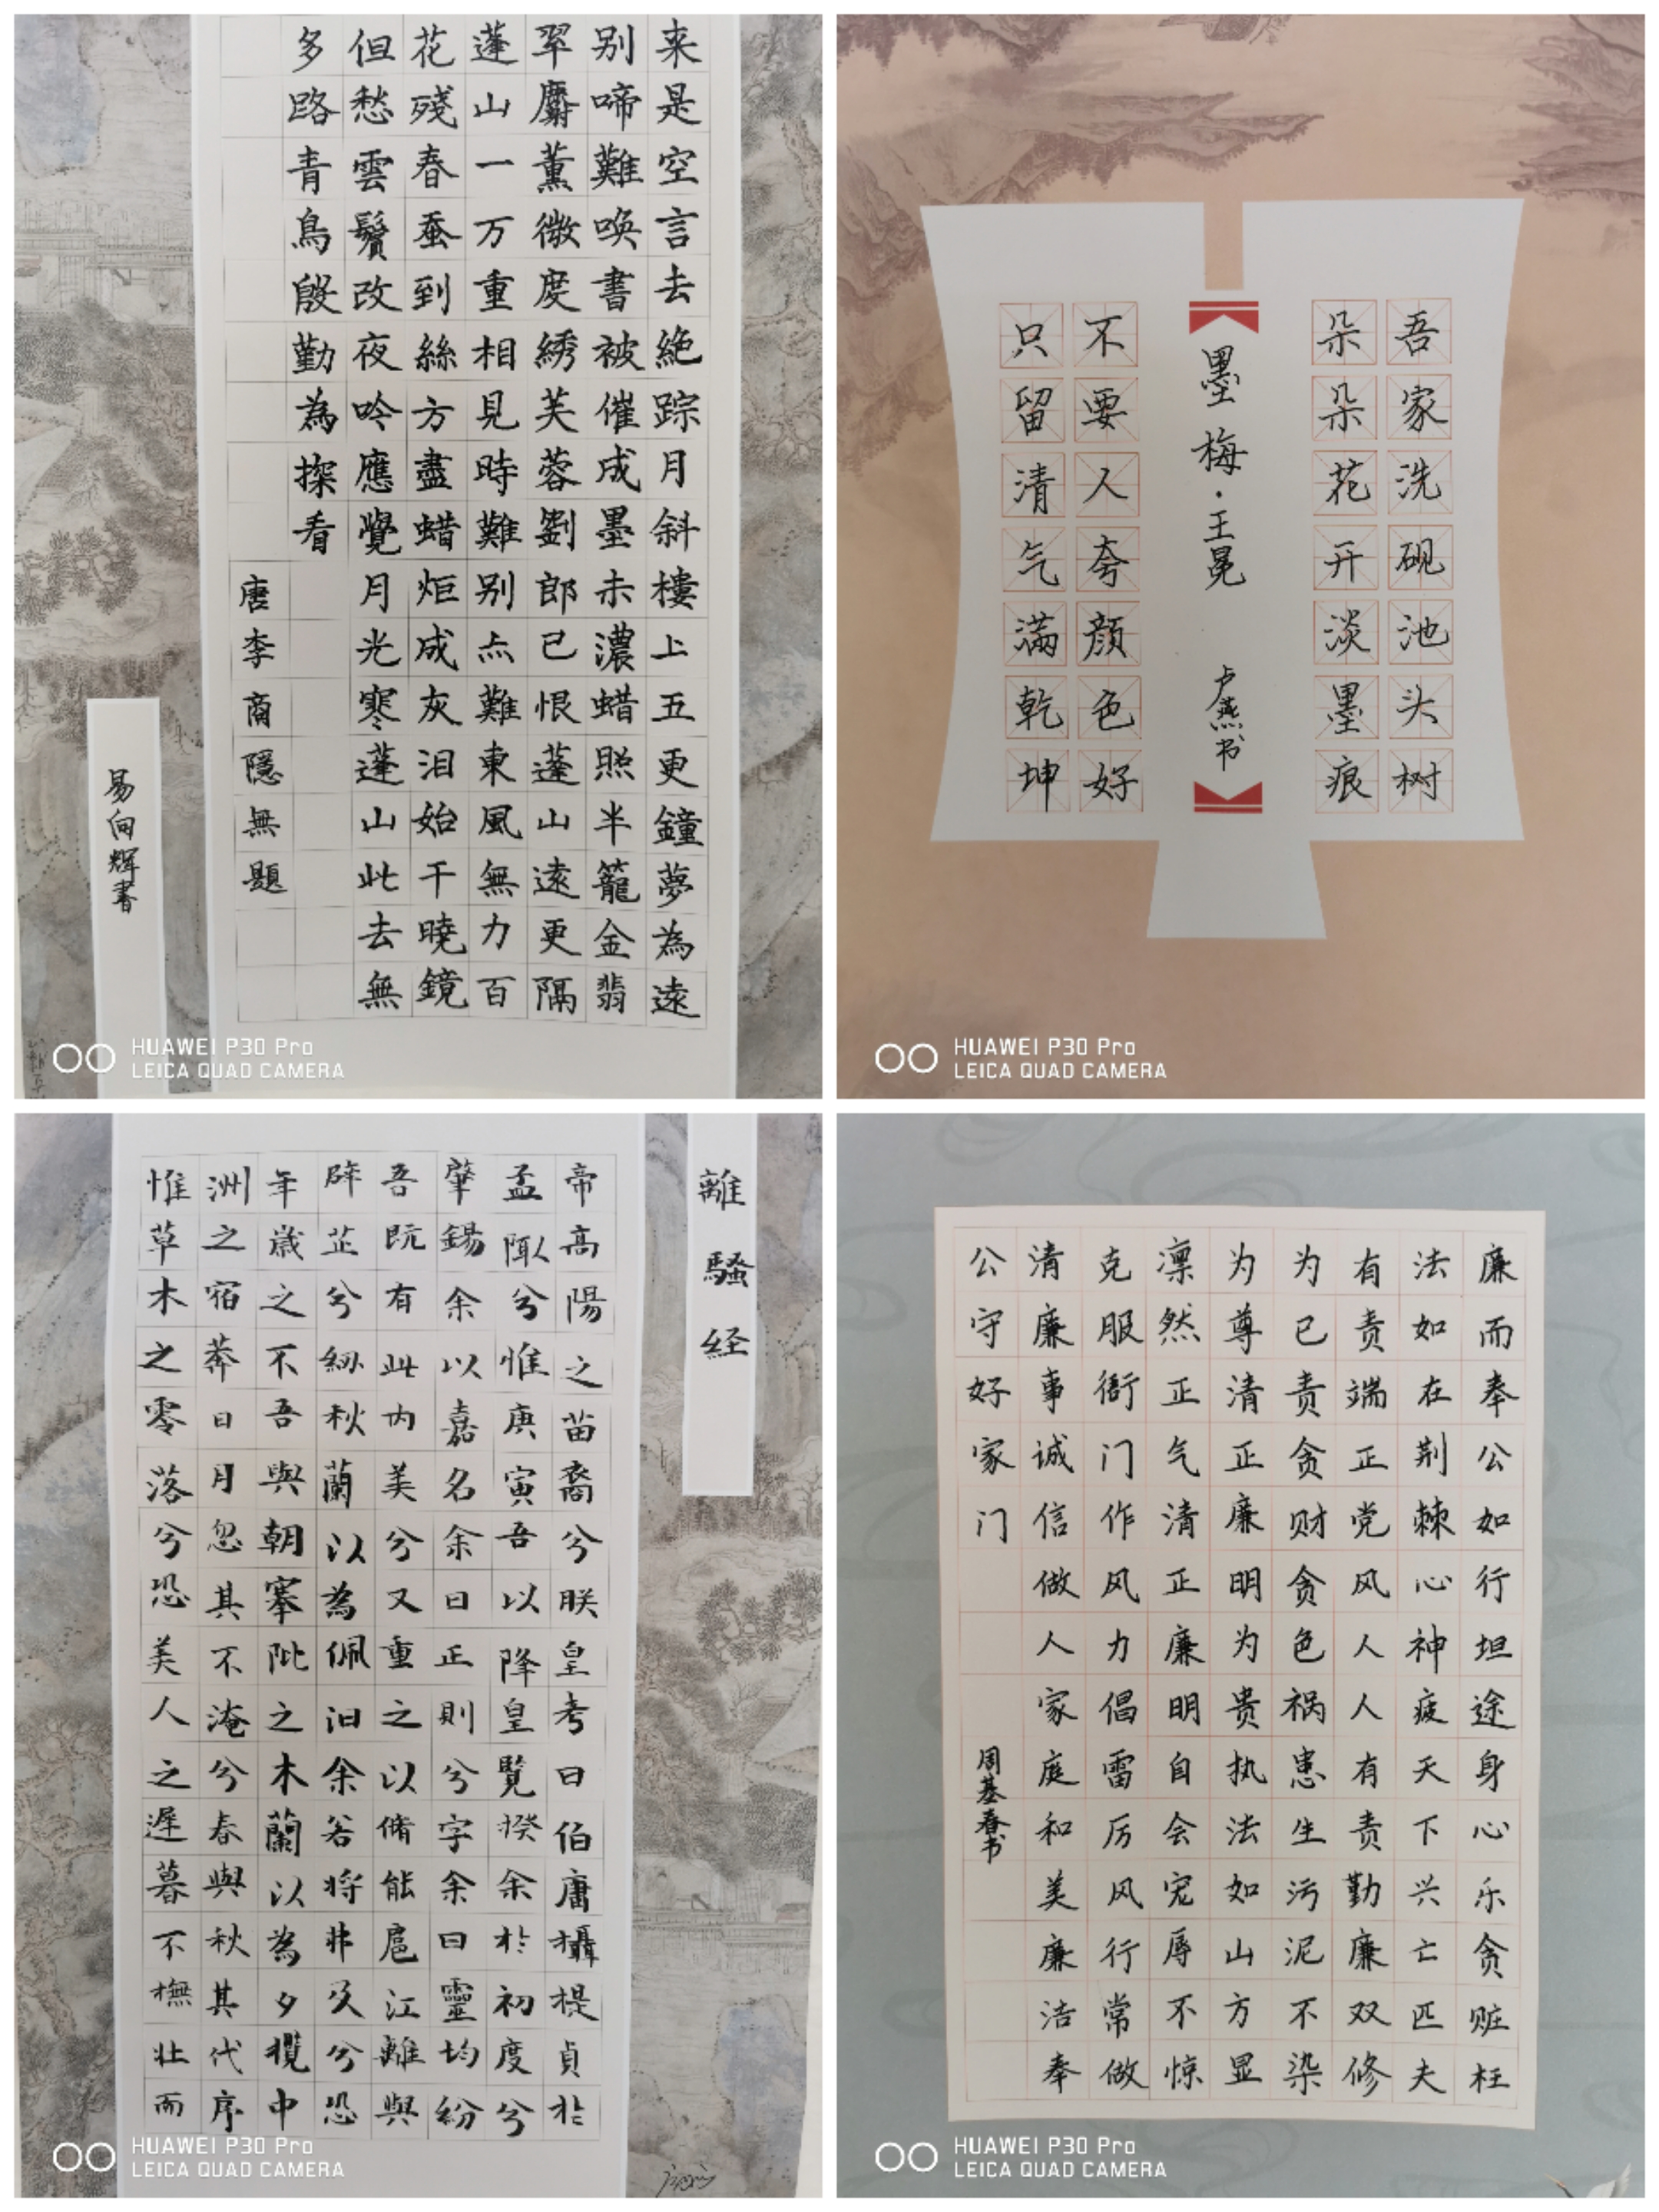 来是空言去絶踪月斜樓上五更鐘夢為遠
别啼難唤書被催成墨未濃蜡照半籠金翡
翠麝薰微度綉芙蓉劉郎已恨蓬山遠更隔
蓬山一万重相見時難别亦難東風無力百
花殘春蚕到絲方盡蜡炬成灰泪始干曉鏡
但愁雲鬢改夜吟應覺月光寒蓬山此去無
多路青鳥殷勤為探看
唐李商隱無題
易向辉書
HUAWEI P30 Pro
LEICA QUAD CAMERA
吾家洗砚池头树
朵朵花开淡墨痕
墨梅·王冕 卢燕书
不要人夸颜色好
只留清气满乾坤
HUAWEI P30 Pro
LEICA QUAD CAMERA
離騷经
帝高陽之苗裔兮朕皇考曰伯庸攝提貞於
孟陬兮惟庚寅吾以降皇覽揆余於初度兮
肇錫余以嘉名余曰正則兮字余曰靈均紛
吾既有此内美兮又重之以脩能扈江離與
辟芷兮紉秋蘭以為佩汩余若將弗及兮恐
年歲之不吾與朝搴阰之木蘭以為夕攬中
洲之宿莽日月忽其不淹兮春與秋其代序
惟草木之零落兮恐美人之遲暮不撫壯而
HUAWEI P30 Pro
LEICA QUAD CAMERA
廉而奉公如行坦途身心乐贪赃枉
法如在荆棘心神疲天下兴亡匹夫
有责端正党风人人有责勤廉双修
为已责贪财贪色祸患生污泥不染
为尊清正廉明为贵执法如山方显
凛然正气清正廉明自会宠辱不惊
克服衙门作风力倡雷厉风行常做
清廉事诚信做人家庭和美廉洁奉
公守好家门
周基春书
HUAWEI P30 Pro
LEICA QUAD CAMERA